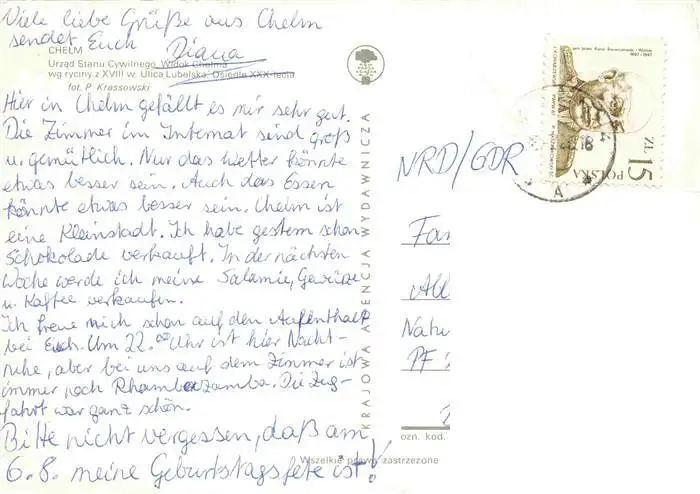 Viele liebe Grüße aus Chelm
sendet Euch Diana
CHEŁM
Urząd Stanu Cywilnego, Widok Chełma
wg ryciny z XVIII w. Ulica Lubelska, Osiedle XXX-lecia
fot. P. Krassowski
Hier in Chelm gefällt es mir sehr gut.
Die Zimmer im Internat sind groß
u. gemütlich. Nur das Wetter könnte
etwas besser sein. Auch das Essen
könnte etwas besser sein. Chelm ist
eine Kleinstadt. Ich habe gestern schon
Schokolade verkauft. In der nächsten
Woche werde ich meine Salamie, Gewürze
u. Kaffee verkaufen.
Ich freue mich schon auf den Aufenthalt
bei Euch. Um 22.00 Uhr ist hier Nacht-
ruhe, aber bei uns auf dem Zimmer ist
immer noch Rhambazamba. Die Zug-
fahrt war ganz schön.
Bitte nicht vergessen, daß am
6.8. meine Geburtstagsfete ist!
KRAJOWA AGENCJA WYDAWNICZA
NRD/GDR
Fam
All
Natu
PF
ozn. kod.
Wszelkie prawa zastrzeżone
POLSKA
ZŁ 15
A